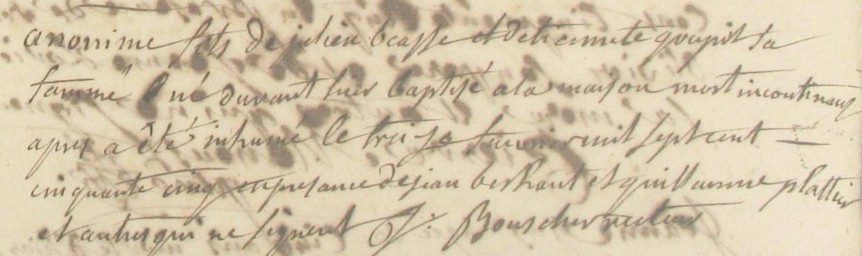 anonime fils de julien beasse et de trinnite goupit sa
famme né davant hier baptisé a la maison mort incontinans
apres a été inhumé le treize fevrier mil sept cent
cinquante cinq en presance de jean berhaut et guillaume plattier
et autres qui ne signent J. Bouscher recteur